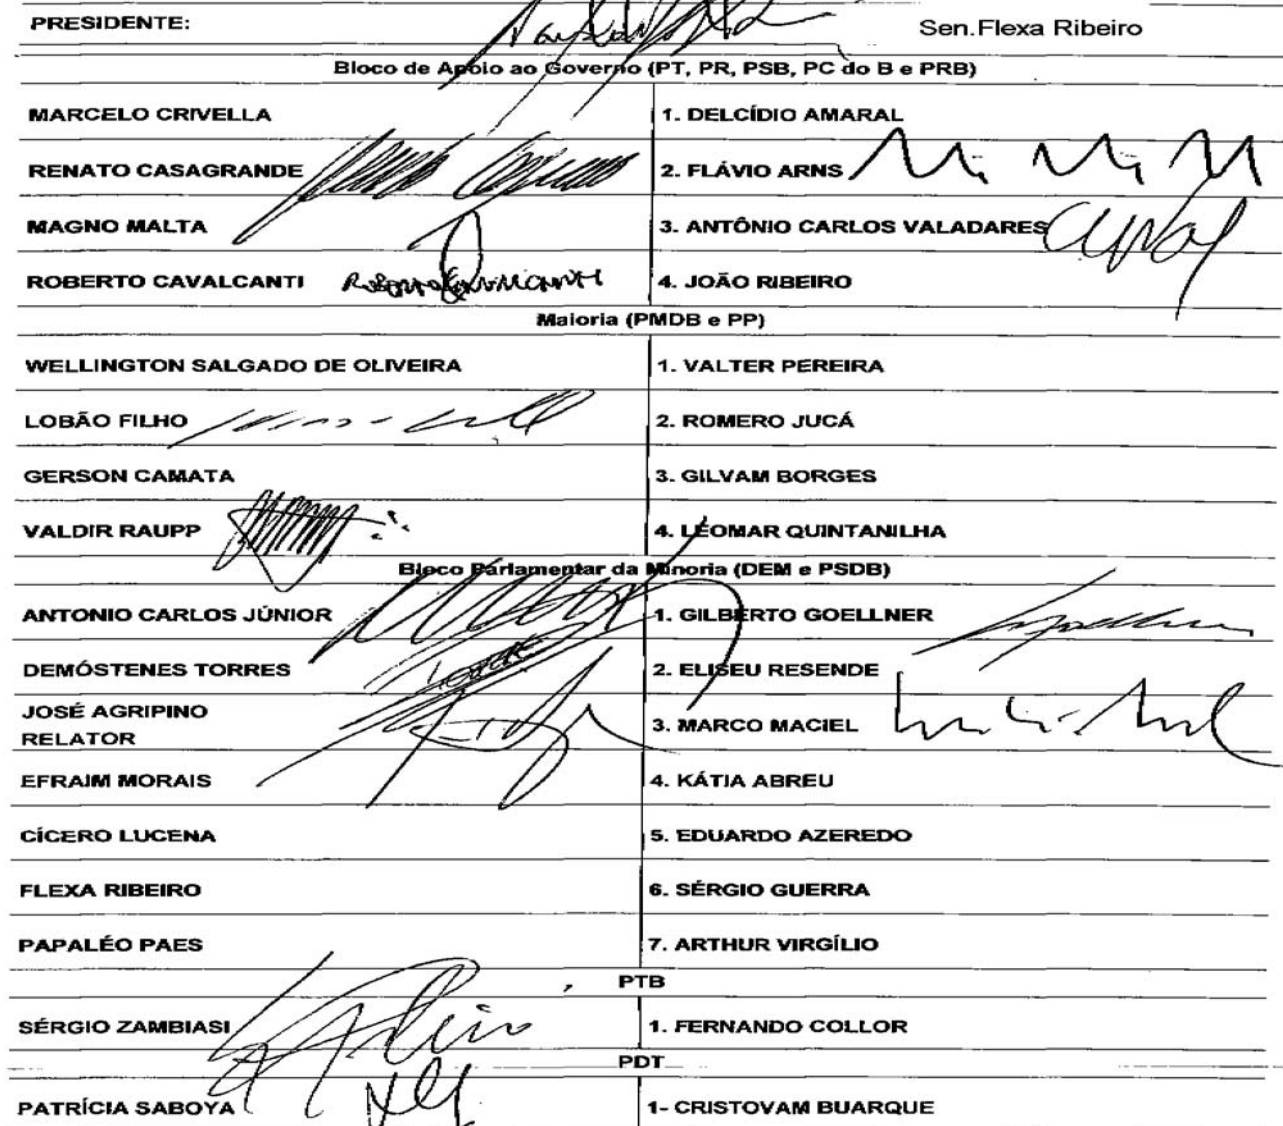 PRESIDENTE: Sen.Flexa Ribeiro
Bloco de Apoio ao Governo (PT, PR, PSB, PC do B e PRB)
MARCELO CRIVELLA 1. DELCÍDIO AMARAL
RENATO CASAGRANDE 2. FLÁVIO ARNS
MAGNO MALTA 3. ANTÔNIO CARLOS VALADARES
ROBERTO CAVALCANTI 4. JOÃO RIBEIRO
Maioria (PMDB e PP)
WELLINGTON SALGADO DE OLIVEIRA 1. VALTER PEREIRA
LOBÃO FILHO 2. ROMERO JUCÁ
GERSON CAMATA 3. GILVAM BORGES
VALDIR RAUPP 4. LEOMAR QUINTANILHA
Bloco Parlamentar da Minoria (DEM e PSDB)
ANTONIO CARLOS JÚNIOR 1. GILBERTO GOELLNER
DEMÓSTENES TORRES 2. ELISEU RESENDE
JOSÉ AGRIPINO
RELATOR 3. MARCO MACIEL
EFRAIM MORAIS 4. KÁTIA ABREU
CÍCERO LUCENA 5. EDUARDO AZEREDO
FLEXA RIBEIRO 6. SÉRGIO GUERRA
PAPALÉO PAES 7. ARTHUR VIRGÍLIO
PTB
SÉRGIO ZAMBIASI 1. FERNANDO COLLOR
PDT
PATRÍCIA SABOYA 1- CRISTOVAM BUARQUE